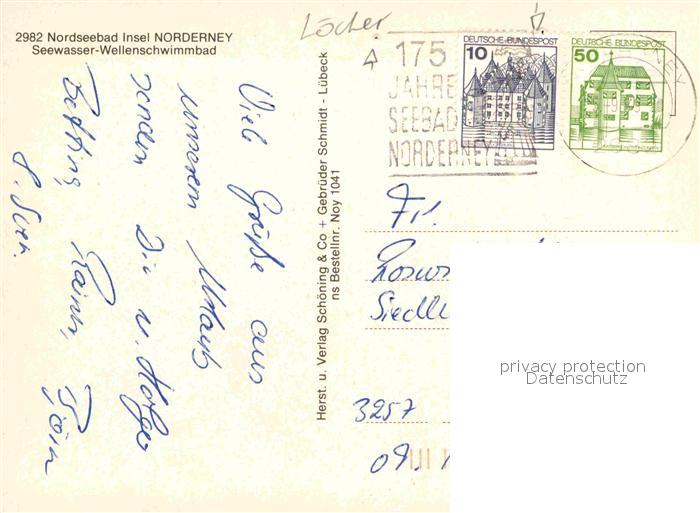 2982 Nordseebad Insel NORDERNEY
Seewasser-Wellenschwimmbad
Löcher
175
JAHRE
SEEBAD
NORDERNEY
DEUTSCHE BUNDESPOST
10
DEUTSCHE BUNDESPOST
50
Viele Grüße aus
unserem Urlaub
senden Dir u. Holger
Rainer,
Herst. u. Verlag Schöning & Co + Gebrüder Schmidt - Lübeck
ns Bestellnr. Noy 1041
Fr.
3257
privacy protection
Datenschutz